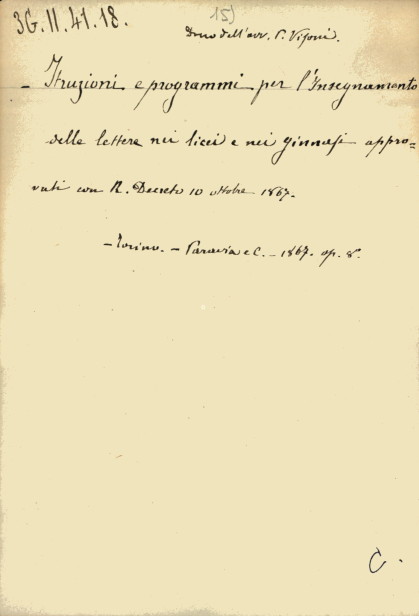 3G.II.41.18.
15)
Dono dell'avv. P. Visoni.
- Istruzioni e programmi per l'Insegnamento
delle lettere nei licei e nei ginnasi appro=
vati con R. Decreto 10 ottobre 1867.
- Torino. - Paravia e C. - 1867. op. 8°.
C.